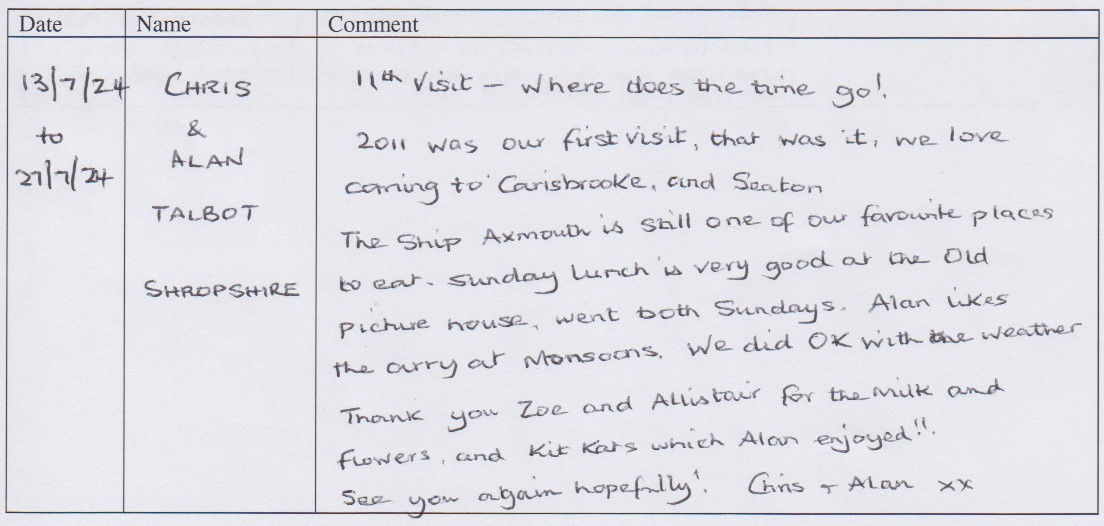 Date Name Comment
13/7/24
to
27/7/24
CHRIS
&
ALAN
TALBOT
SHROPSHIRE
11th Visit – Where does the time go!
2011 was our first visit, that was it, we love
coming to Carisbrooke, and Seaton
The Ship Axmouth is still one of our favourite places
to eat. Sunday Lunch is very good at the Old
picture house, went both Sundays. Alan likes
the curry at Monsoons. We did OK with the weather
Thank you Zoe and Allistair for the milk and
flowers, and Kit Kats which Alan enjoyed!!.
See you again hopefully! Chris + Alan xx